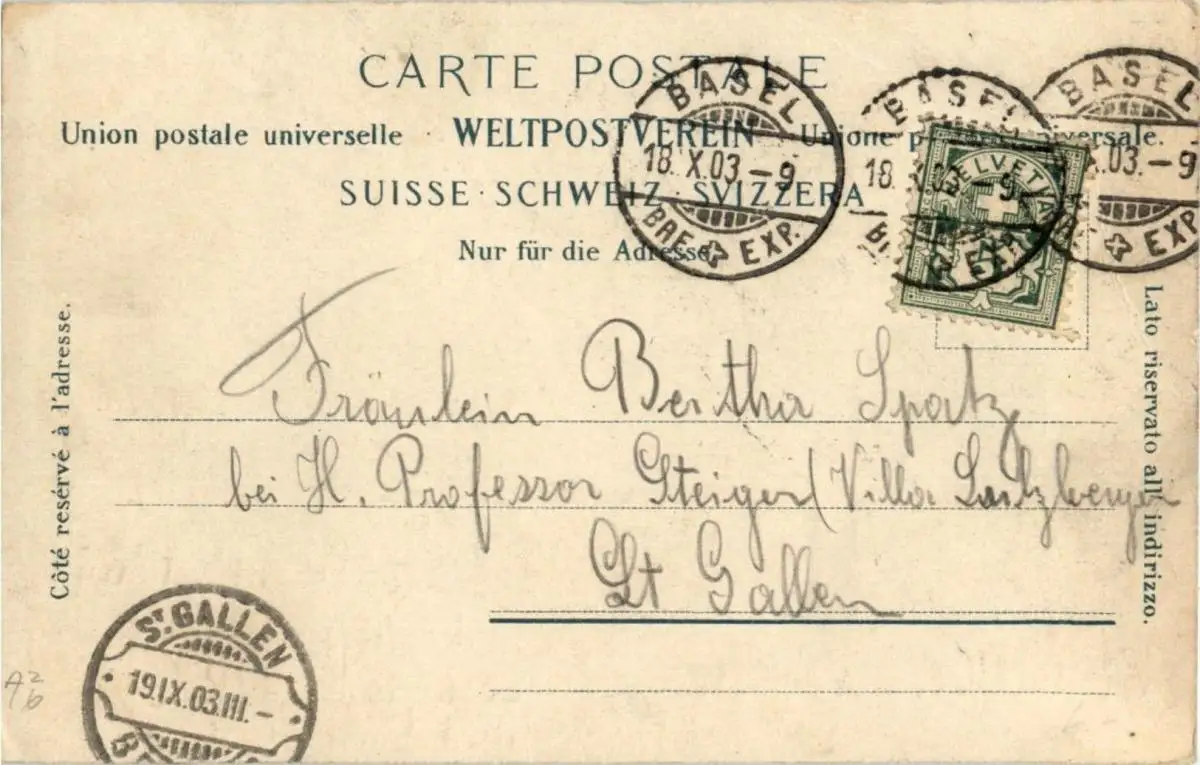 CARTE POSTALE
Union postale universelle · WELTPOSTVEREIN · Unione p universale.
SUISSE · SCHWEIZ · SVIZZERA
Nur für die Adresse.
BASEL
18. X.03.–9
BRF. EXP.
BASEL
18. X.03.–9
BRF. EXP.
BASEL
X.03.–9
EXP.
HELVETIA
Côté resérvé à l'adresse.
Lato riservato all' indirizzo.
Fräulein Bertha Spatz
bei H. Professor Steiger (Villa
St Gallen
ST. GALLEN
19.IX.03.III.–
A2b